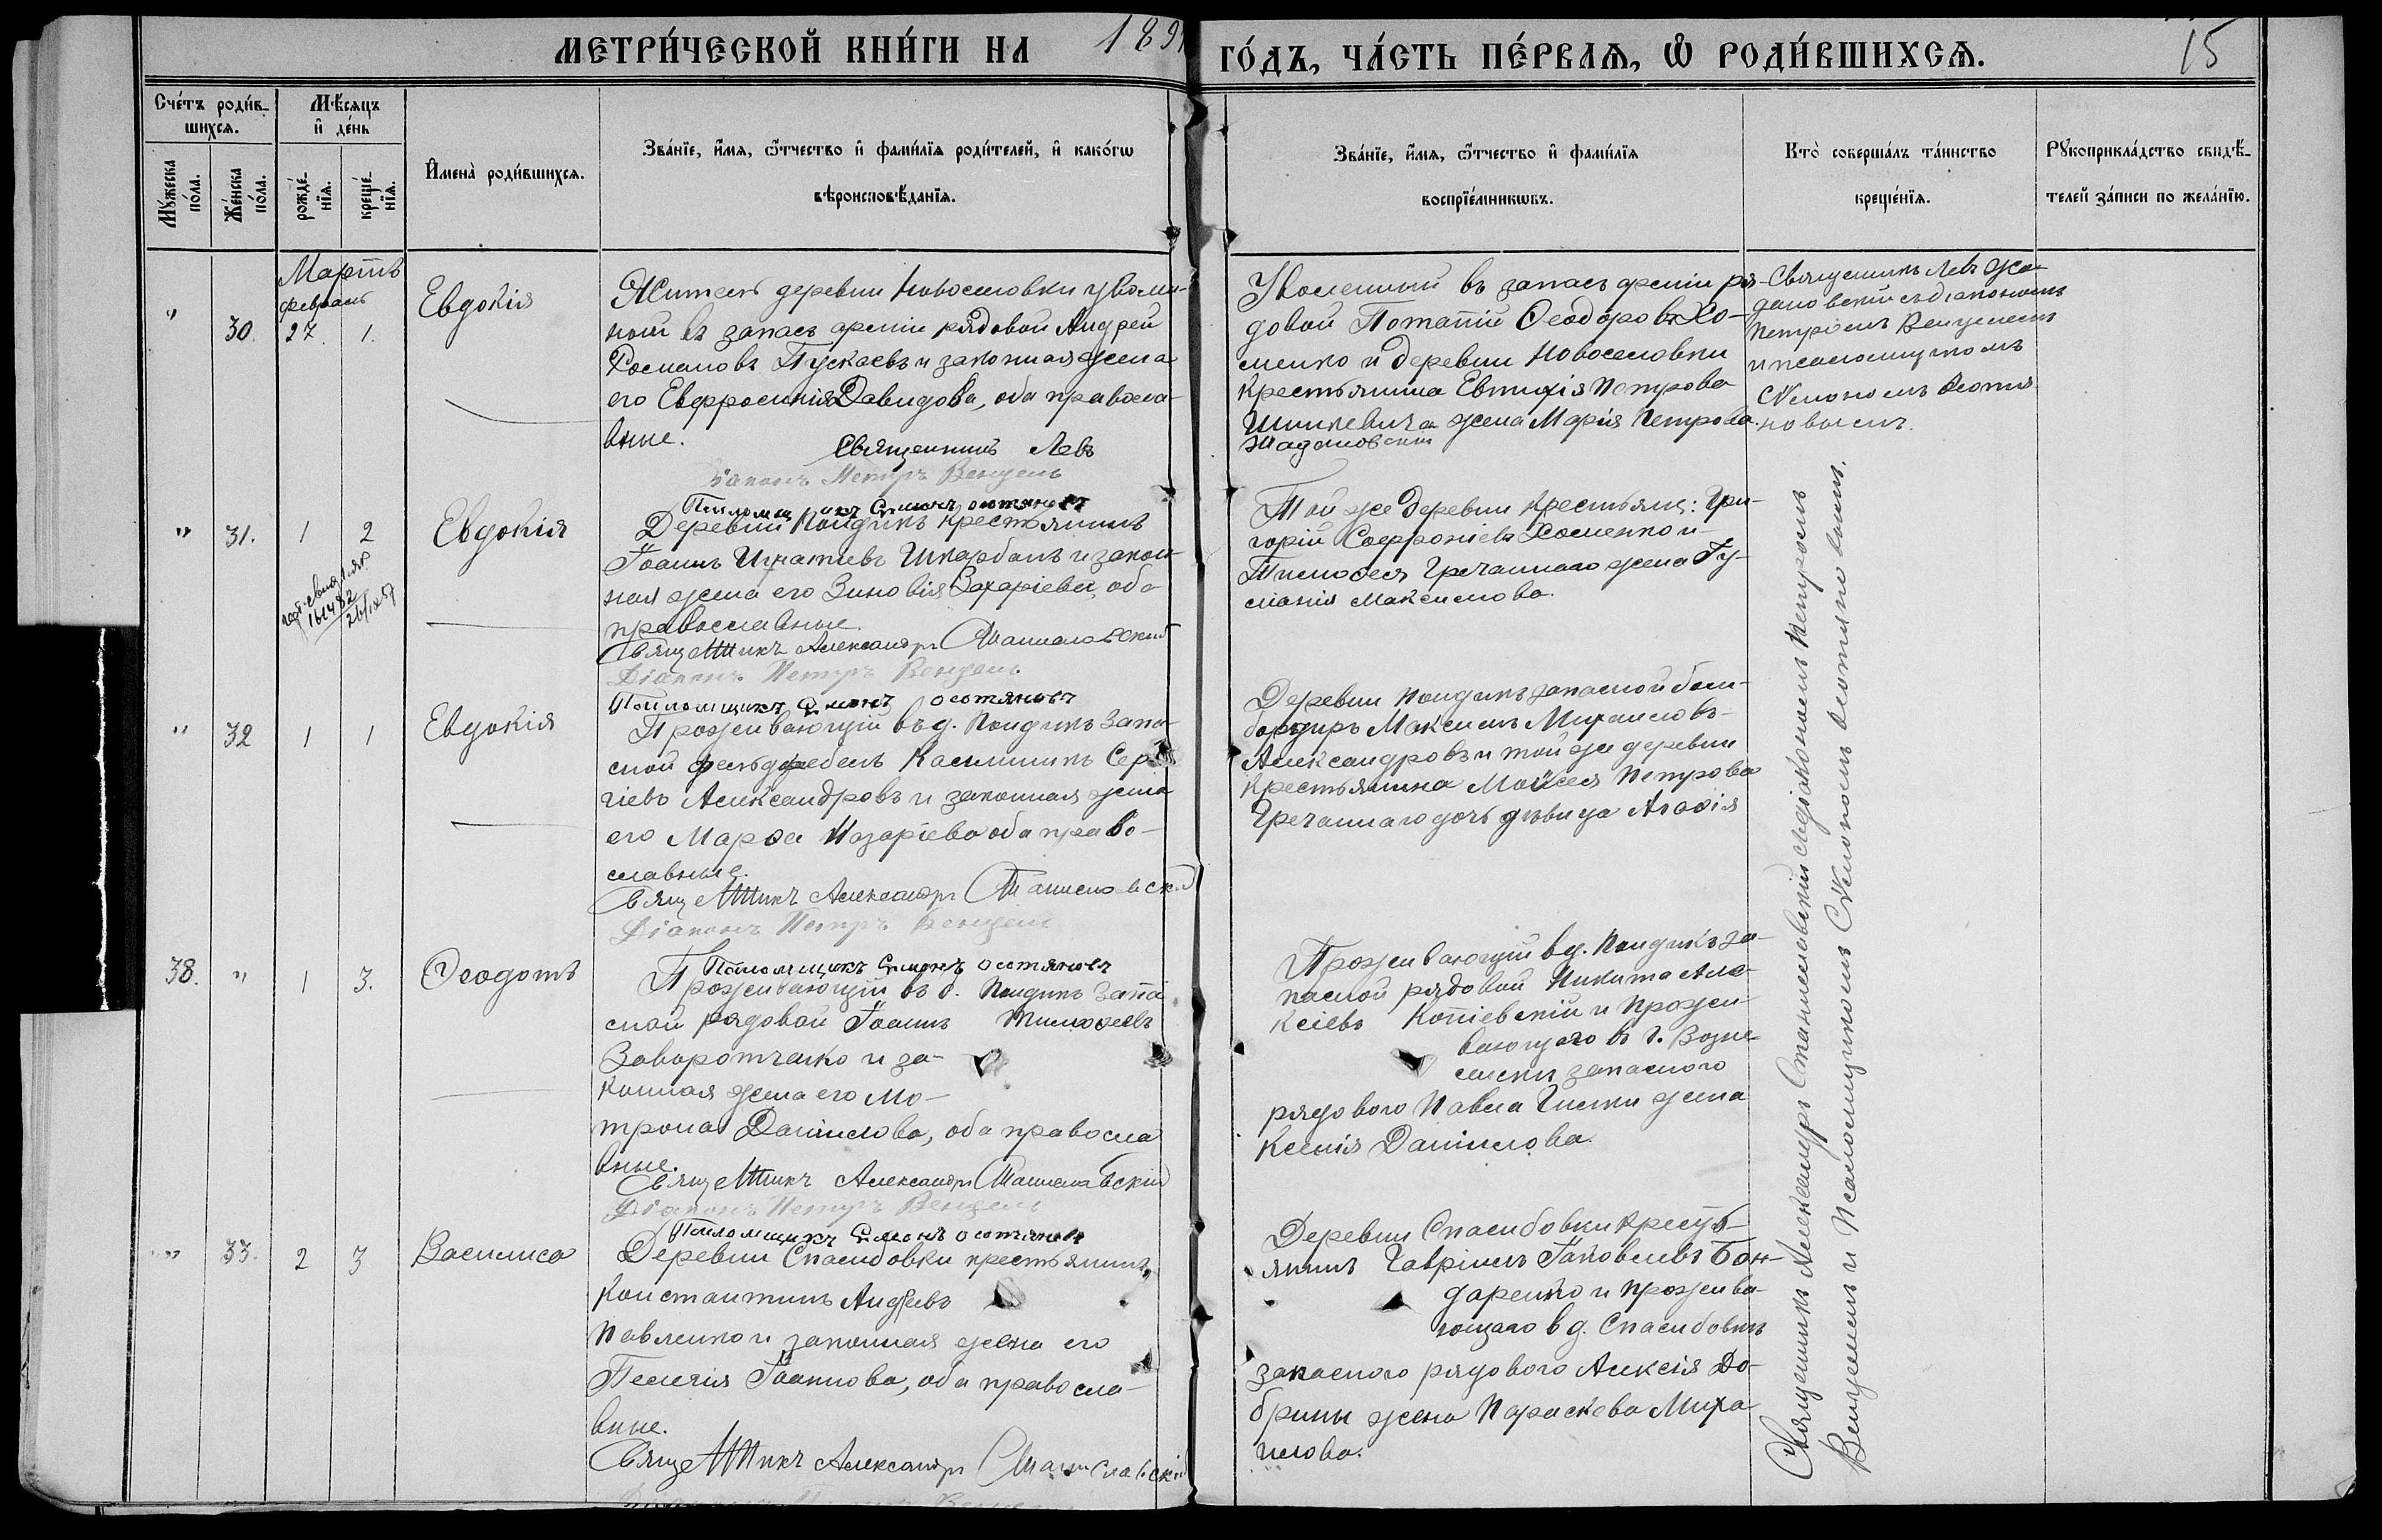 МЕТРИ́ЧЕСКОЙ КНИ́ГИ НА 189
ГО́ДЪ, ЧА́СТЬ ПЕ́РВАѦ, Ѡ҆ РОДИ́ВШИХСѦ.
15
Сче́тъ роди́в-
шихсѧ.
Мѣ́сяцъ
и҆ де́нь
Му́жеска
по́ла.
Же́нска
по́ла.
рожде́-
нїѧ.
креще́-
нїѧ.
И҆мена̀ роди́вшихсѧ.
Зва́нїе, и҆́мѧ, ѻ҆́тчество и҆ фами́лїѧ роди́телей, и҆ како́гѡ
вѣроисповѣ́данїѧ.
Зва́нїе, и҆́мѧ, ѻ҆́тчество и҆ фами́лїѧ
воспрїе́мникѡвъ.
Кто̀ соверша́лъ та́инство
креще́нїѧ.
Рꙋкоприкла́дство свидѣ́-
телей за́писи по жела́нїю.
Мартъ
февраль
" 30. 27. 1.
Евдокія
Житель деревни Новоселовки уволен-
ный въ запасъ арміи рядовой Андрей
Романовъ Пускаевъ и законная жена
его Евфросинія Давидова, оба правосла-
вные.
Священникъ Левъ
Жадановскій
Діаконъ Петръ Венцель
Псаломщикъ Симонъ Осотяновъ
Уволенный въ запасъ арміи ря-
довой Потапій Ѳеодоровъ Хо-
менко и деревни Новоселовки
крестьянина Евтихія Петрова
Шинкевича жена Марія Петрова.
Священникъ Левъ Жа-
дановскій съ діакономъ
Петромъ Венцелемъ
и псаломщикомъ
Симономъ Осотя-
новымъ.
" 31. 1 2
Евдокія
161482
Деревни Кондикъ крестьянинъ
Іоаннъ Игнатіевъ Шкарбанъ и закон-
ная жена его Зиновія Захаріева, оба
православные.
Священникъ Александръ Станиславскій
Діаконъ Петръ Венцель
Псаломщикъ Симонъ Осотяновъ
Той же деревни крестьяне: Гри-
горій Софроніевъ Хоменко и
Тимоѳея Гречаннаго жена Іу-
ліанія Максимова.
" 32 1 1
Евдокія
Проживающій въ д. Кондикъ запа-
сной фельдфебель Каллиникъ Сер-
гіевъ Александровъ и законная жена
его Марѳа Назаріева оба право-
славные.
Священникъ Александръ Станиславскій
Діаконъ Петръ Венцель
Псаломщикъ Симонъ Осотяновъ
Деревни Кондикъ запасной бом-
бардиръ Максимъ Михаиловъ
Александровъ и той же деревни
крестьянина Моисея Петрова
Гречаннаго дочь дѣвица Агаѳія
38. " 1 3.
Ѳеодотъ
Проживающій въ д. Кондикъ запа
сной рядовой Іоаннъ Тимоѳеевъ
Заворотченко и за-
конная жена его Ма-
трона Даніилова, оба правосла
вные.
Священникъ Александръ Станиславскій
Діаконъ Петръ Венцель
Псаломщикъ Симонъ Осотяновъ
Проживающій въ д. Кондикъ за-
пасной рядовой Никита Але-
ксіевъ Копіевскій и прожи-
вающаго въ г. Возне-
сенскъ запасного
рядового Павла жена
Ксенія Даніилова.
" 33. 2 3
Василиса
Деревни Спасибовки крестьянинъ
Константинъ Андреевъ
Павленко и законная жена его
Пелагія Іоаннова, оба правосла-
вные.
Священникъ Александръ Станиславскій
Деревни Спасибовки кресть-
янинъ Гавріилъ Іаковлевъ Бон-
даренко и прожива-
ющаго въ д. Спасибовкъ
запасного рядового Алексія До-
брины жена Параскева Миха
илова.
Священникъ Александръ Станиславскій съ діакономъ Петромъ
Венцелемъ и Псаломщикомъ Симономъ Осотяновымъ.